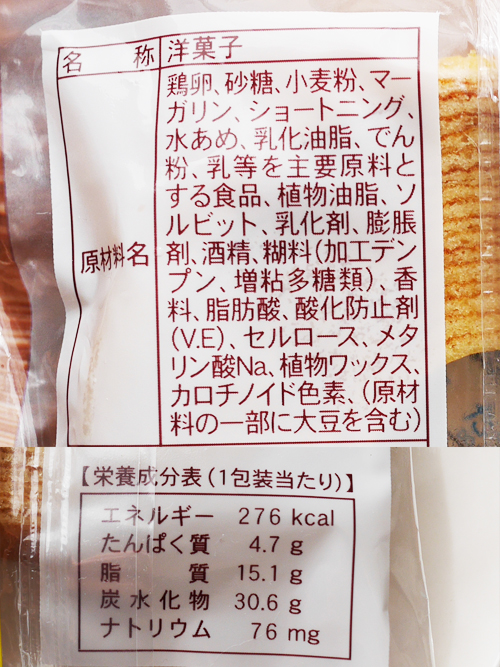 名 称 洋菓子
原材料名
鶏卵、砂糖、小麦粉、マー
ガリン、ショートニング、
水あめ、乳化油脂、でん
粉、乳等を主要原料と
する食品、植物油脂、ソ
ルビット、乳化剤、膨脹
剤、酒精、糊料(加工デン
プン、増粘多糖類)、香
料、脂肪酸、酸化防止剤
(V.E)、セルロース、メタ
リン酸Na、植物ワックス、
カロチノイド色素、(原材
料の一部に大豆を含む)
【栄養成分表(1包装当たり)】
エネルギー 276 kcal
たんぱく質 4.7 g
脂 質 15.1 g
炭水化物 30.6 g
ナトリウム 76 mg